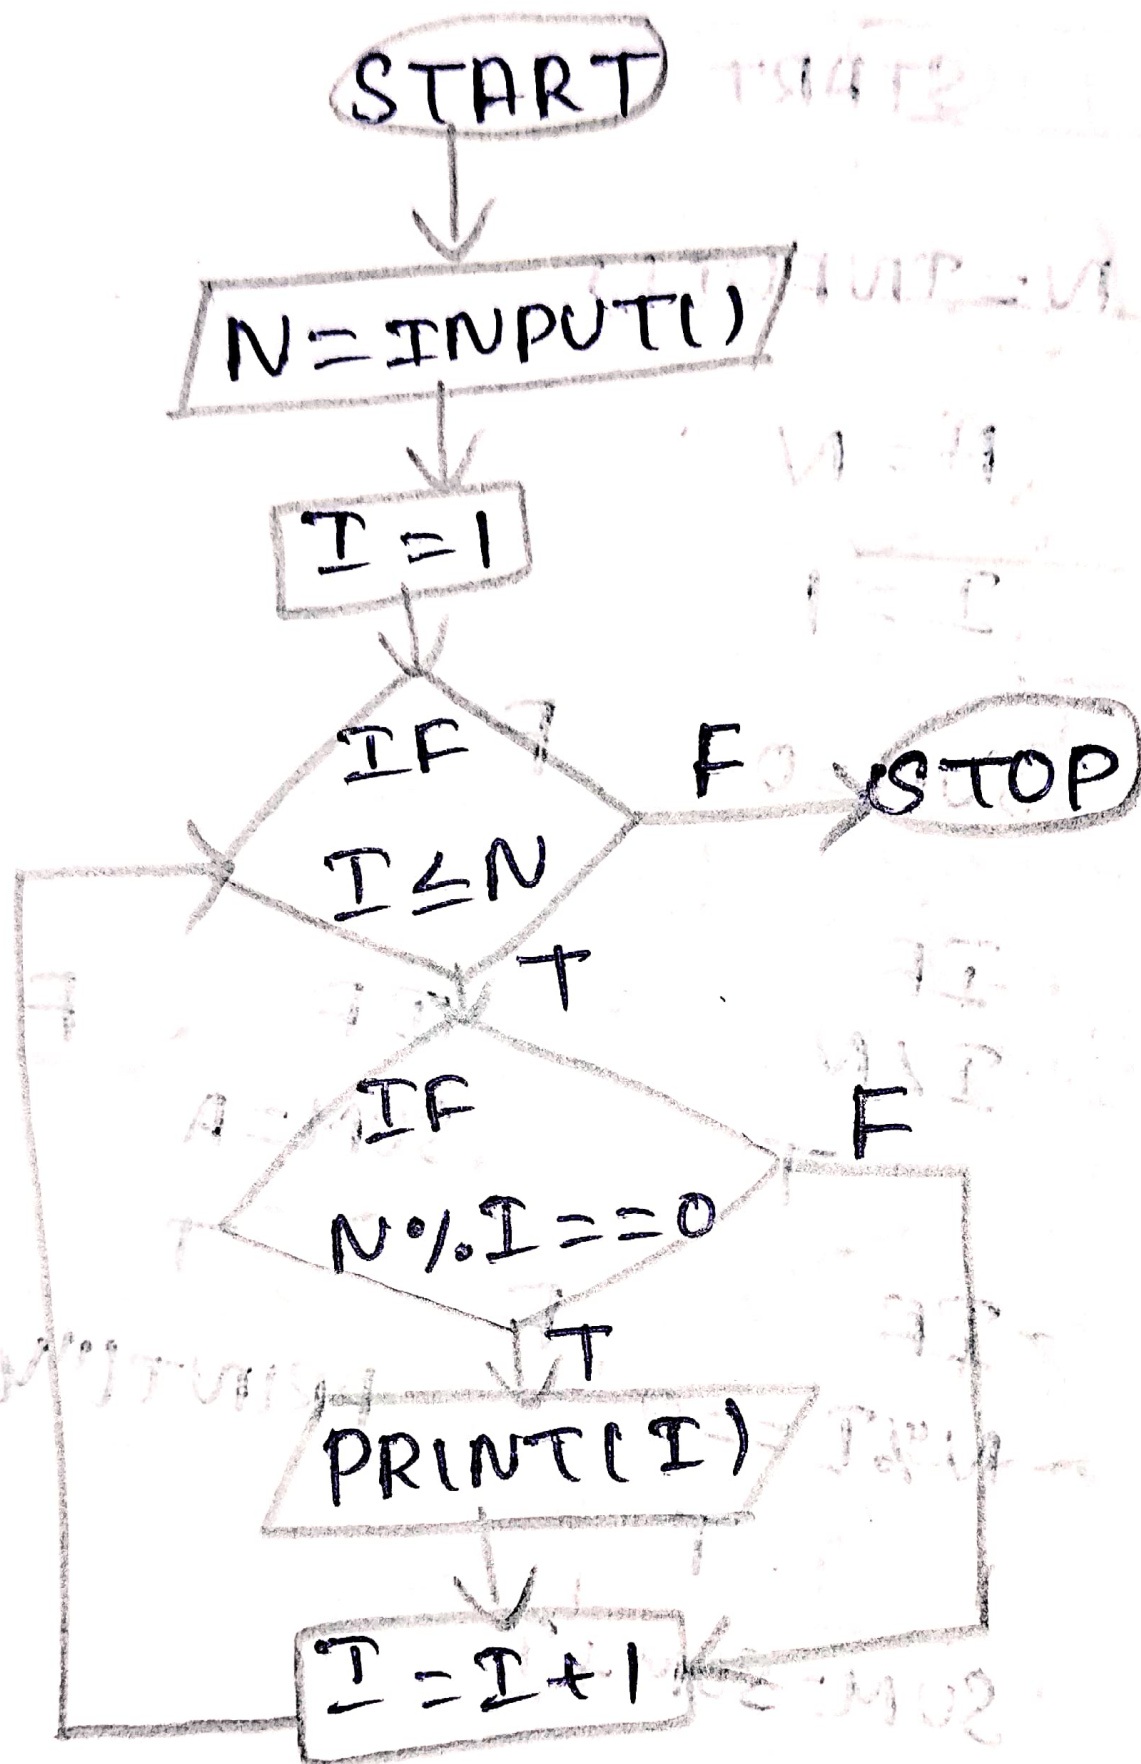 START
N=INPUT()
I=1
IF
I≤N
F
STOP
T
IF
N%I==0
F
T
PRINT(I)
I=I+1